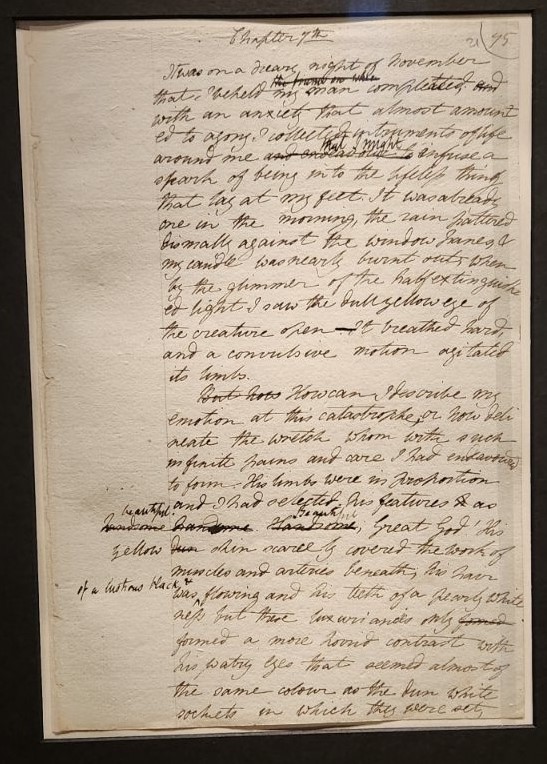 Chapter 7th
21 95
It was on a dreary night of November
the frame on whic
that I beheld my man compleated, And
with an anxiety that almost amount
ed to agony I collected instruments of life
that I might
around me and endeavour to infuse a
spark of being into the lifeless thing
that lay at my feet. It was already
one in the morning, the rain pattered
dismally against the window panes, &
my candle was nearly burnt out, when
by the glimmer of the half extinguish
ed light I saw the dull yellow eye of
the creature open – It breathed hard,
and a convulsive motion agitated
its limbs.
But how How can I describe my
emotion at this catastrophe, or how deli
neate the wretch whom with such
infinite pains and care I had endeavoured
to form. His limbs were in proportion
and I had selected his features & as
beautiful Beautiful
handsome handsome Handsome, Great God! His
yellow dun skin scarcely covered the work of
muscles and arteries beneath, his hair
of a lustrous black &
was flowing and his teeth of a pearly white
ness but these luxuriances only formed
formed a more horrid contrast with
his watry eyes that seemed almost of
the same colour as the dun white
sockets in which they were set,